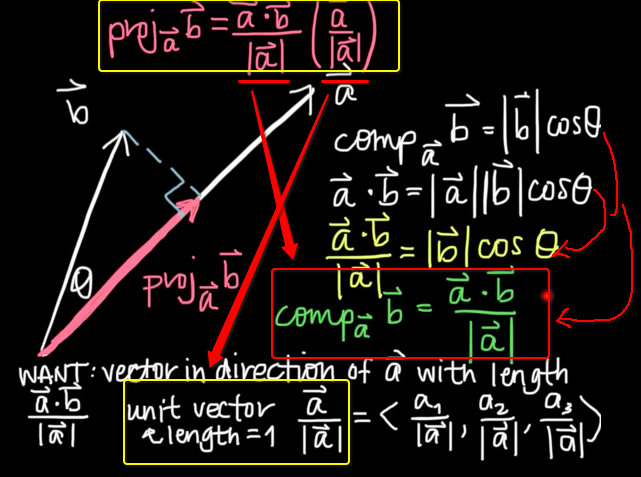 proj_a⃗ b⃗ = a⃗·b⃗/|a⃗| (a⃗/|a⃗|)
b⃗
a⃗
comp_a⃗ b⃗ = |b⃗| cosθ
a⃗·b⃗ = |a⃗||b⃗| cosθ
a⃗·b⃗/|a⃗| = |b⃗| cos θ
θ
proj_a⃗ b⃗
comp_a⃗ b⃗ = a⃗·b⃗/|a⃗|
WANT: vector in direction of a⃗ with length
a⃗·b⃗/|a⃗|
unit vector
length=1
a⃗/|a⃗| = < a₁/|a⃗|, a₂/|a⃗|, a₃/|a⃗| >